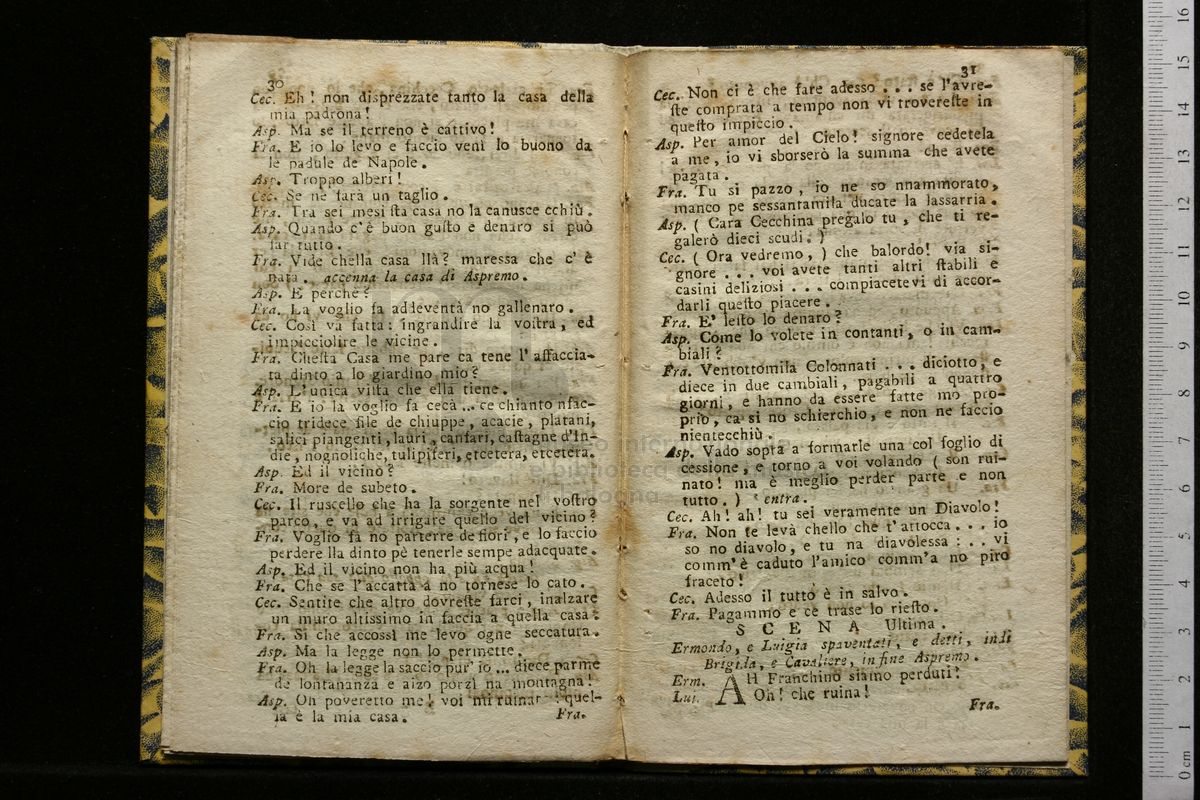 30
Cec. Eh! non disprezzate tanto la casa della
mia padrona!
Asp. Ma se il terreno è cattivo!
Fra. E io lo levo e faccio venì lo buono da
le padule de Napole.
Asp. Troppo alberi!
Cec. Se ne farà un taglio.
Fra. Tra sei mesi sta casa no la canusce cchiù.
Asp. Quando c'è buon gusto e denaro si può
far tutto.
Fra. Vide chella casa llà? maressa che c' è
nata. accenna la casa di Aspremo.
Asp. E perchè?
Fra. La voglio fa addeventà no gallenaro.
Cec. Così va fatta: ingrandire la vostra, ed
impicciolire le vicine.
Fra. Chesta Casa me pare ca tene l' affaccia-
ta dinto a lo giardino mio?
Asp. L'unica vista che ella tiene.
Fra. E io la voglio fa cecà... ce chianto nfac-
cio tridece file de chiuppe, acacie, platani,
salici piangenti, lauri, canfari, castagne d'In-
die, nognoliche, tulipiferi, etcetera, etcetera.
Asp. Ed il vicino?
Fra. More de subeto.
Cec. Il ruscello che ha la sorgente nel vostro
parco, e va ad irrigare quello del vicino?
Fra. Voglio fa no parterre de fiori, e lo faccio
perdere lla dinto pè tenerle sempe adacquate.
Asp. Ed il vicino non ha più acqua!
Fra. Che se l'accatta a no tornese lo cato.
Cec. Sentite che altro dovreste farci, inalzare
un muro altissimo in faccia a quella casa:
Fra. Sì che accossì me levo ogne seccatura.
Asp. Ma la legge non lo permette.
Fra. Oh la legge la saccio pur' io... diece parme
de lontananza e aizo porzì na montagna!
Asp. Oh poveretto me! voi mi ruinar : quel-
la è la mia casa.
Fra.
31
Cec. Non ci è che fare adesso... se l'avre-
ste comprata a tempo non vi trovereste in
questo impiccio.
Asp. Per amor del Cielo! signore cedetela
a me, io vi sborserò la summa che avete
pagata.
Fra. Tu si pazzo, io ne so nnammorato,
manco pe sessantamila ducate la lassarria.
Asp. ( Cara Cecchina pregalo tu, che ti re-
galerò dieci scudi. )
Cec. ( Ora vedremo, ) che balordo! via si-
gnore... voi avete tanti altri stabili e
casini deliziosi... compiacetevi di accor-
darli questo piacere.
Fra. E' lesto lo denaro?
Asp. Come lo volete in contanti, o in cam-
biali?
Fra. Ventottomila Colonnati... diciotto, e
diece in due cambiali, pagabili a quattro
giorni, e hanno da essere fatte mo pro-
prio, ca si no schierchio, e non ne faccio
nientecchiù.
Asp. Vado sopra a formarle una col foglio di
cessione, e torno a voi volando ( son rui-
nato! ma è meglio perder parte e non
tutto. ) entra.
Cec. Ah! ah! tu sei veramente un Diavolo!
Fra. Non te levà chello che t'attocca... io
so no diavolo, e tu na diavolessa:.. vi
comm'è caduto l'amico comm'a no piro
fraceto!
Cec. Adesso il tutto è in salvo.
Fra. Pagammo e ce trase lo riesto.
SCENA Ultima.
Ermondo, e Luigia spaventati, e detti, indi
Brigida, e Cavaliere, in fine Aspremo.
Erm. AH Franchino siamo perduti!
Lui. Oh! che ruina!
Fra.